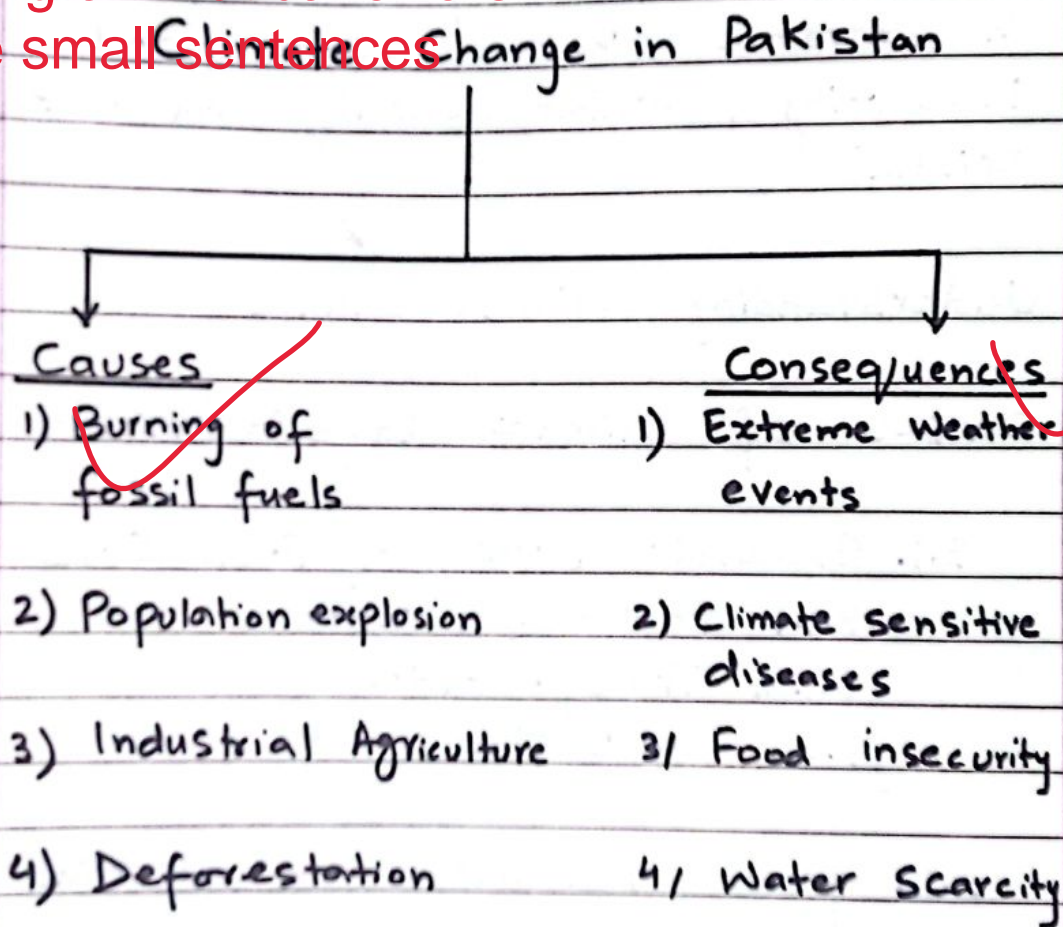 small sentences
Climate Change in Pakistan
Causes
1) Burning of
fossil fuels
2) Population explosion
3) Industrial Agriculture
4) Deforestation
Consequences
1) Extreme Weather
events
2) Climate sensitive
diseases
3/ Food insecurity
4/ Water Scarcity